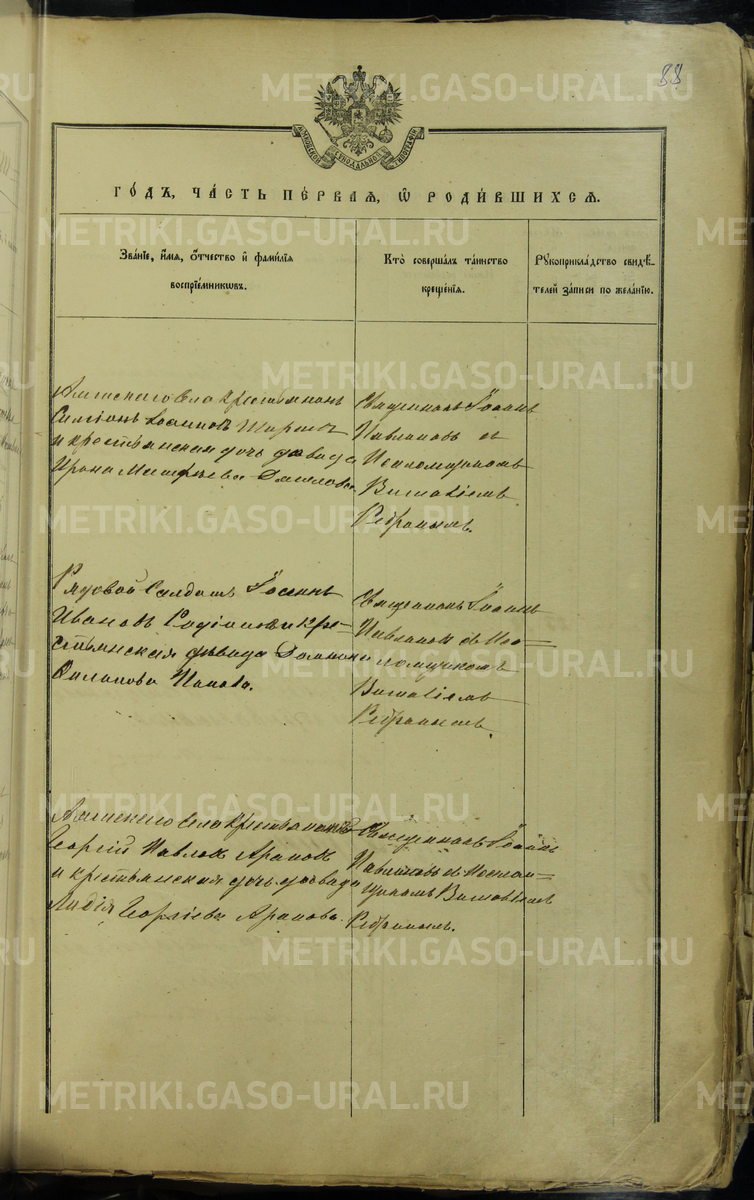 88
МОСКОВСКОЙ СѴНОДАЛЬНОЙ ТИПОГРАФІИ
ГО́ДЪ, ЧА́СТЬ ПЕ́РВАЯ, Ѽ РОДИ́ВШИХСЯ.
Зва́нїе, и҆́мя, ѻ҆́тчество и҆ фами́лїя
воспрїе́мникѡвъ.
Кто̀ соверша́лъ та́инство
креще́нїя.
Рꙋкоприкла́дство свидѣ́-
телей за́писи по жела́нїю.
села крестьянинъ
Симеонъ Іоанновъ
и крестьянская дочь девица
Ирина
Священникъ Іоаннъ
Павлиновъ съ
Псаломщикомъ
Виталіемъ
Ребринымъ.
Рядовой Солдатъ
Ивановъ Родіоновъ и кре-
стьянская дѣвица Домника
Филипова Попова.
Священникъ Іоаннъ
Павлиновъ съ Пса-
ломщикомъ
Виталіемъ
Ребринымъ.
села крестьянинъ
Георгій Павловъ Араповъ
и крестьянская дочь девица
Лидія Георгіева Арапова.
Священникъ Іоаннъ
Павлиновъ съ Псалом-
щикомъ Виталіемъ
Ребринымъ.
METRIKI.GASO-URAL.RU